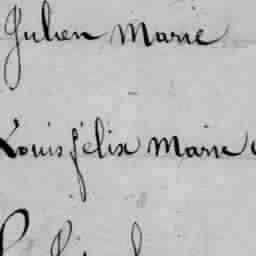 Julien Marie
Louis félix Marie